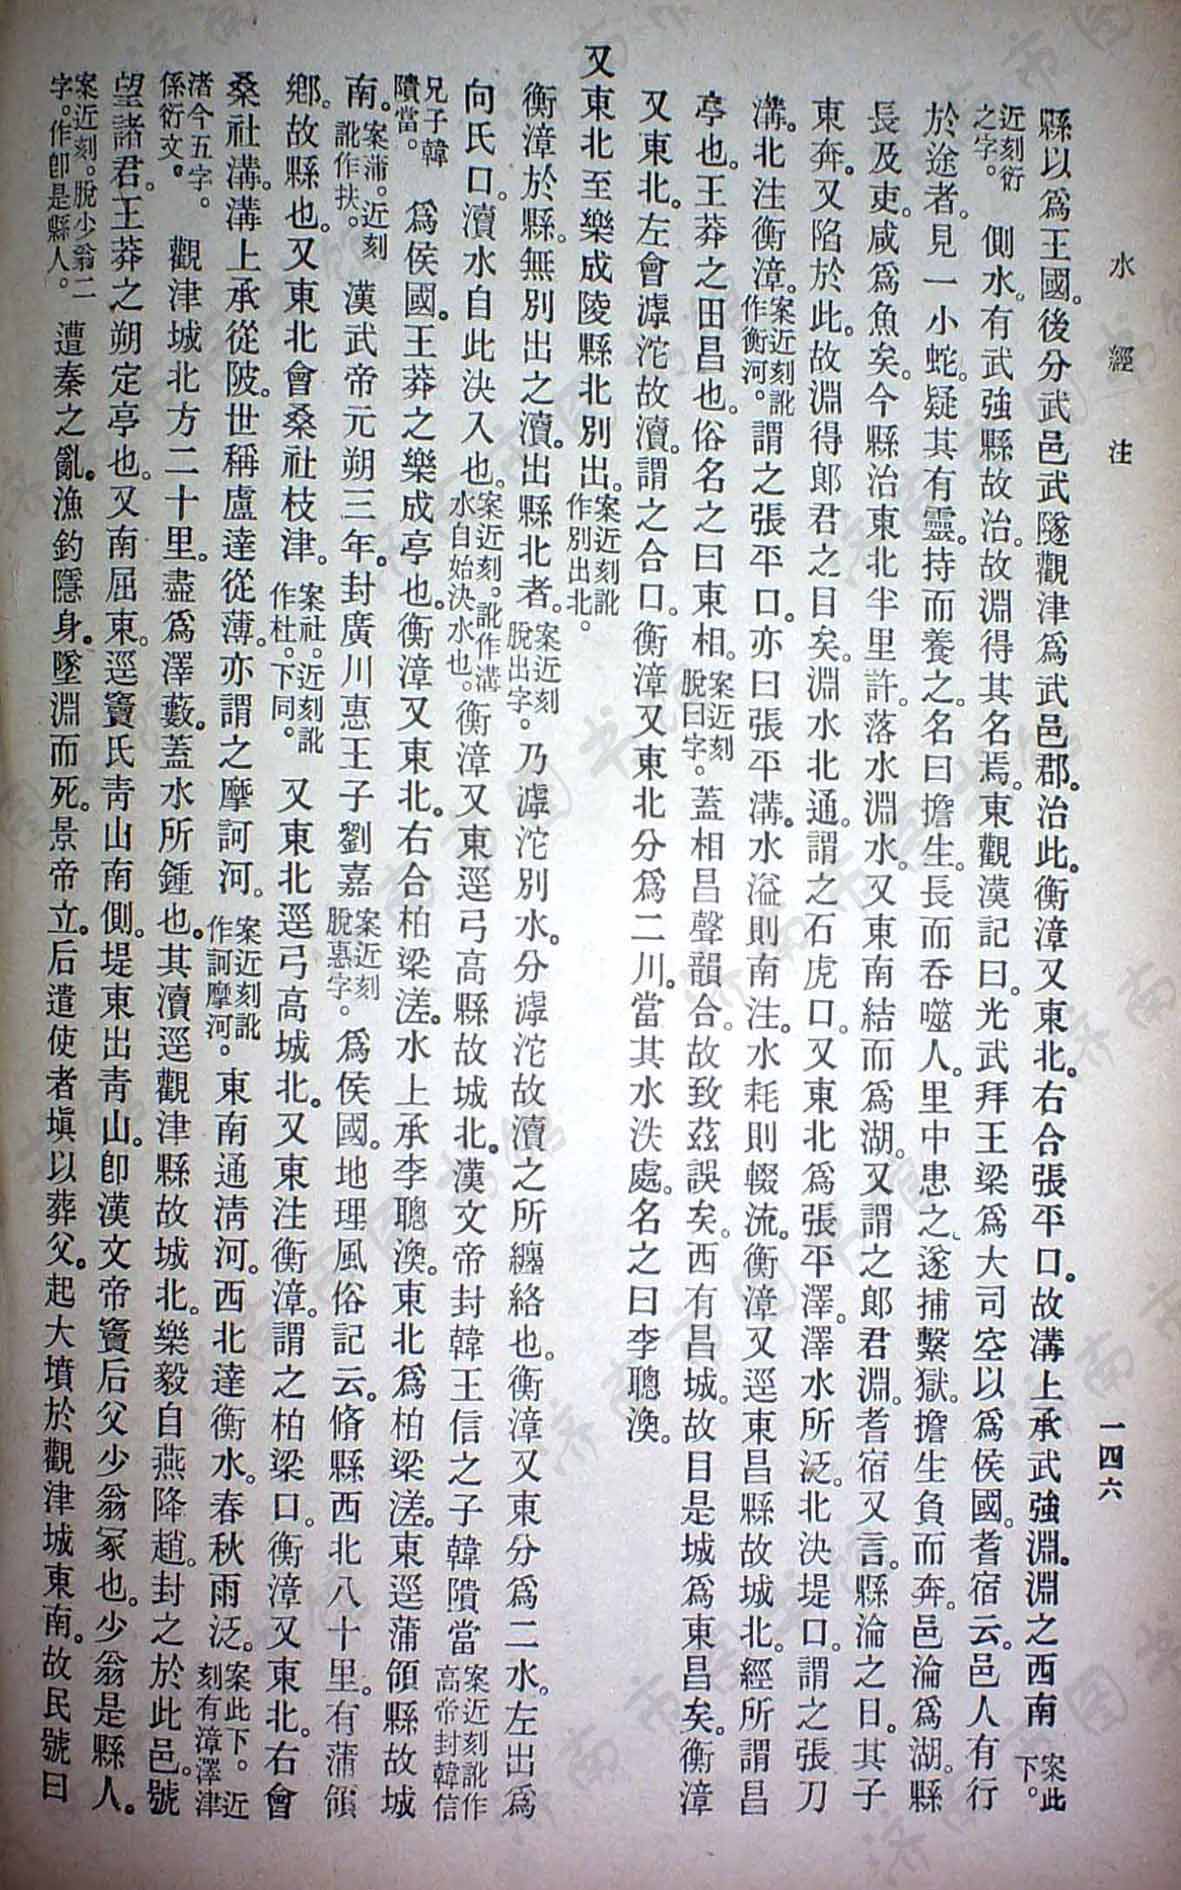 水經注
一四六
縣以爲王國。後分武邑武隧觀津爲武邑郡。治此。衡漳又東北。右合張平口。故溝上承武強淵。淵之西南案此下。
近刻衍之字。側水。有武強縣故治。故淵得其名焉。東觀漢記曰。光武拜王梁爲大司空以爲侯國。耆宿云。邑人有行
於途者。見一小蛇。疑其有靈。持而養之。名曰擔生。長而吞噬人。里中患之。遂捕繫獄。擔生負而奔。邑淪爲湖。縣
長及吏。咸爲魚矣。今縣治東北半里許。落水淵水。又東南結而爲湖。又謂之郎君淵。耆宿又言。縣淪之日。其子
東奔。又陷於此。故淵得郎君之目矣。淵水北通。謂之石虎口。又東北爲張平澤。澤水所泛。北決堤口。謂之張刀
溝。北注衡漳。案近刻訛作衡河。謂之張平口。亦曰張平溝。水溢則南注。水耗則輟流。衡漳又逕東昌縣故城北。經所謂昌
亭也。王莽之田昌也。俗名之曰東相。案近刻脫曰字。蓋相昌聲韻合。故致茲誤矣。西有昌城。故目是城爲東昌矣。衡漳
又東北。左會滹沱故瀆。謂之合口。衡漳又東北分爲二川。當其水泆處。名之曰李聰渙。
又東北至樂成陵縣北別出。案近刻訛作別出北。
衡漳於縣。無別出之瀆。出縣北者。案近刻脫出字。乃滹沱別水。分滹沱故瀆之所纏絡也。衡漳又東分爲二水。左出爲
向氏口。瀆水自此決入也。案近刻。訛作溝水自始決水也。衡漳又東逕弓高縣故城北。漢文帝封韓王信之子韓隤當案近刻訛作高帝封韓信
兄子韓隤當。爲侯國。王莽之樂成亭也。衡漳又東北。右合柏梁溠。水上承李聰渙。東北爲柏梁溠。東逕蒲領縣故城
南。案蒲。近刻訛作扶。漢武帝元朔三年。封廣川惠王子劉嘉案近刻脫惠字。爲侯國。地理風俗記云。脩縣西北八十里。有蒲領
鄉。故縣也。又東北會桑社枝津。案社。近刻訛作杜。下同。又東北逕弓高城北。又東注衡漳。謂之柏梁口。衡漳又東北。右會
桑社溝。溝上承從陂。世稱盧達從薄。亦謂之摩訶河。案近刻訛作訶摩河。東南通淸河。西北達衡水。春秋雨泛。案此下。近刻有漳澤津
渚今五字。係衍文。觀津城北方二十里。盡爲澤藪。蓋水所鍾也。其瀆逕觀津縣故城北。樂毅自燕降趙。封之於此邑。號
望諸君。王莽之朔定亭也。又南屈東。逕竇氏靑山南側。堤東出靑山。卽漢文帝竇后父少翁冢也。少翁是縣人。
案近刻。脫少翁二字。作卽是縣人。遭秦之亂。漁釣隱身。墜淵而死。景帝立。后遣使者塡以葬父。起大墳於觀津城東南。故民號曰